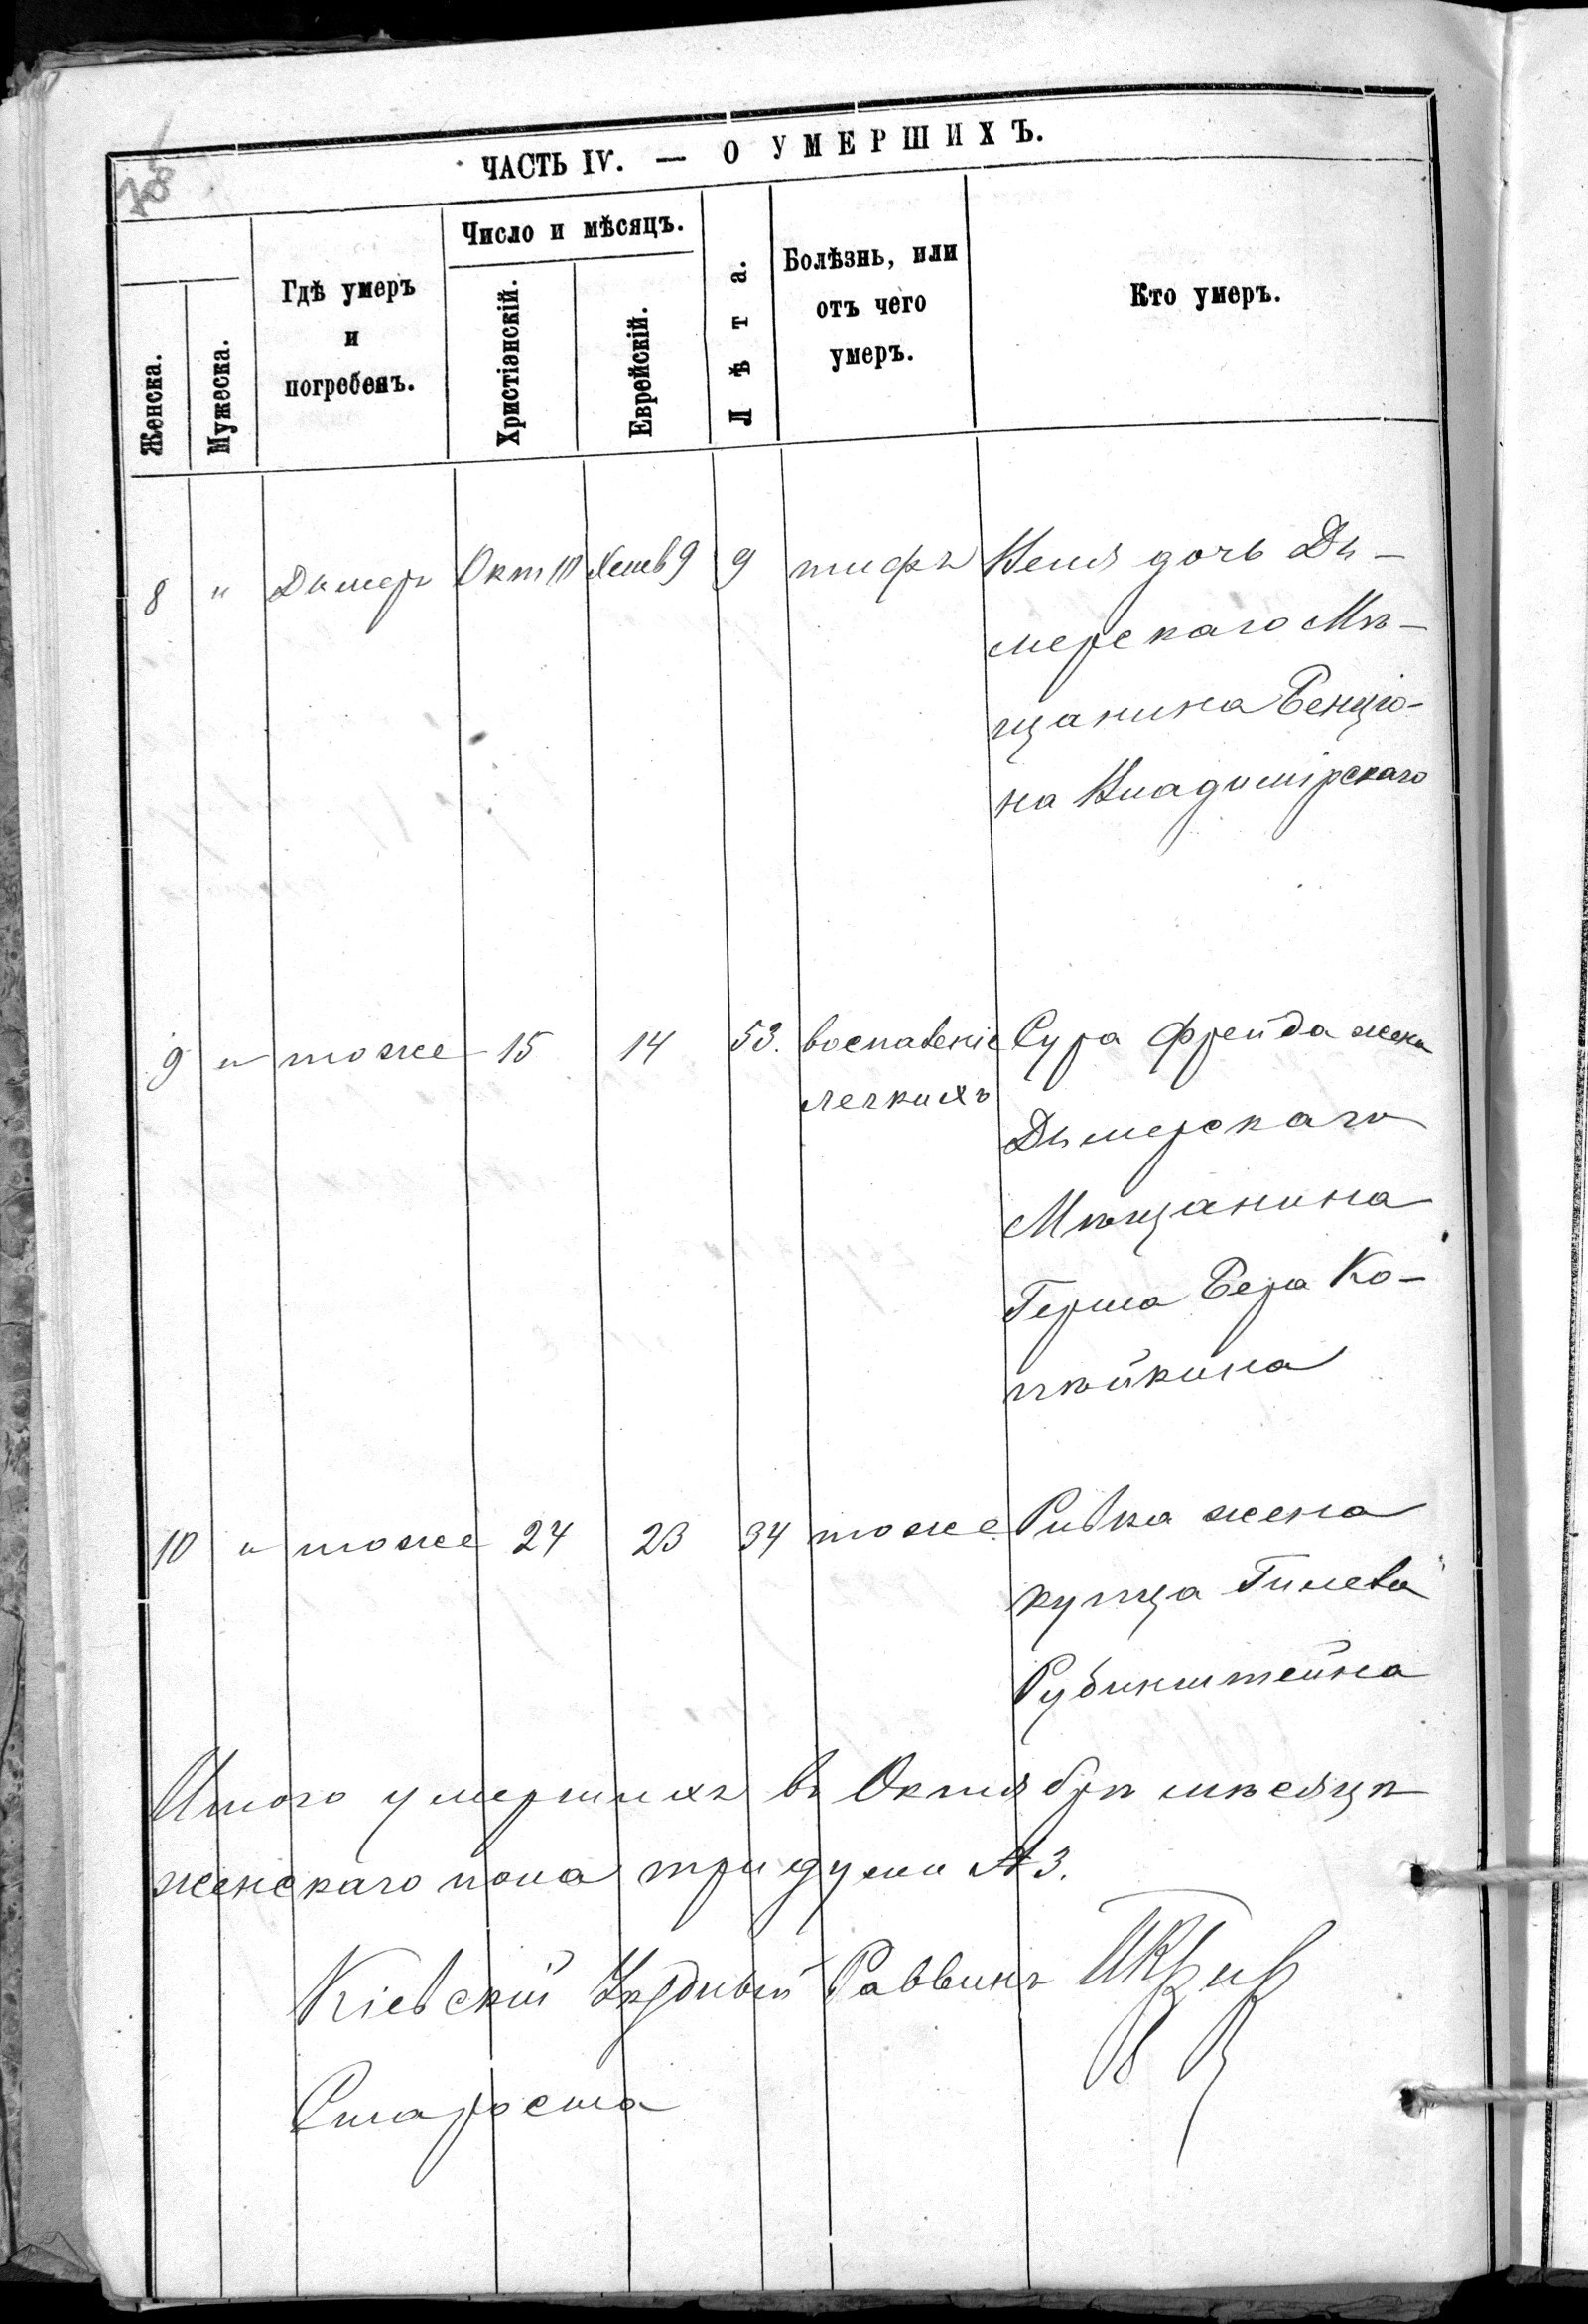 ЧАСТЬ IV. — О УМЕРШИХЪ.
Женска.
Мужеска.
Гдѣ умеръ
и
погребенъ.
Число и мѣсяцъ.
Христіанскій.
Еврейскій.
Лѣта.
Болѣзнь, или
отъ чего
умеръ.
Кто умеръ.
8 " Дымеръ Окт 10 Хешв 9 9 тифъ
дочь Ды-
мерскаго Мѣ-
щанина Бенціо-
на Владимірскаго
9 " тоже 15 14 53. воспаленіе Сура Фрейда жена
легкихъ
Дымерскаго
Мѣщанина
Герша Бера Ко-
пѣйкина
10 " тоже 24 23 34 тоже Ривка жена
купца
Рубинштейна
Итого умершихъ въ Октябрѣ мѣсяцѣ
женскаго пола три души № 3.
Кіевскій Уѣздный Раввинъ
Староста